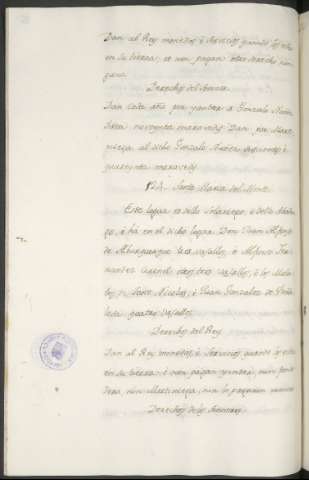 Dan al Rey monedas, é servicios quando los echa
en su tierra, et non pagan otro derecho nin-
guno.
Derechos del Señor
Dan cada año por yantar a Gonzalo
noventa maravedis. Dan por Mart
niega al dicho Gonzalo doscientos é
quarenta maravedis.
124. Santa Maria del Monte.
Este logar es dello Solariego, é dello Abaden-
go, é ha en el dicho logar Don Joan Alfonso
de Alburquerque tres vasallos, é Alfonso Fer-
nandez otros tres vasallos, é los
Sant Nicolas, é Joan Gonzalez de
quatro vasallos.
Derechos del Rey
Dan al Rey monedas, é servicios quando los echa
en su tierra: é non pagan yantar, nin fonsa-
dera, nin Martiniega, nin lo pagaron nunca
Derechos de los Señores